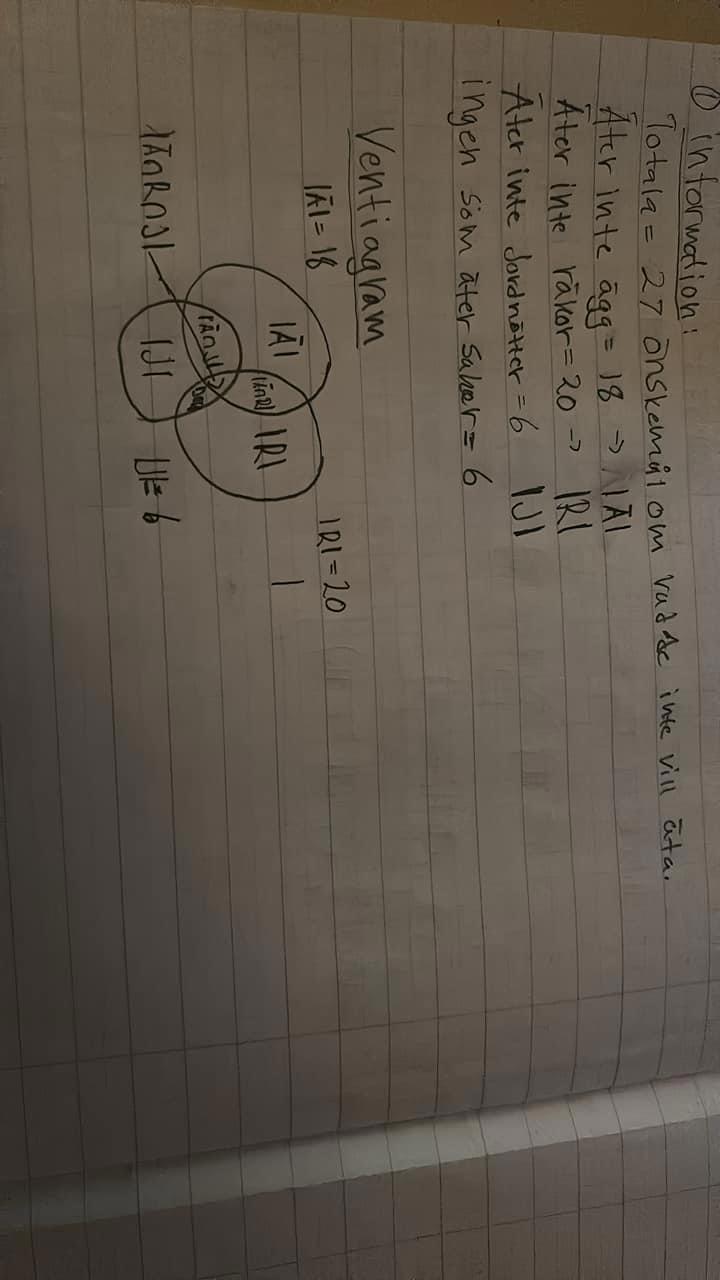 ① information:
Totala = 27 önskemål om vad de inte vill äta.
Äter inte ägg = 18 → |Ä|
Äter inte räkor = 20 → |R|
Äter inte Jordnötter = 6 |J|
ingen som äter saker = 6
Ventiagram
|Ä| = 18
|R| = 20
|
|Ä|
|R|
|Ä∩R|
|Ä∩J|
|J|
|J|= 6
|Ä∩R∩J|